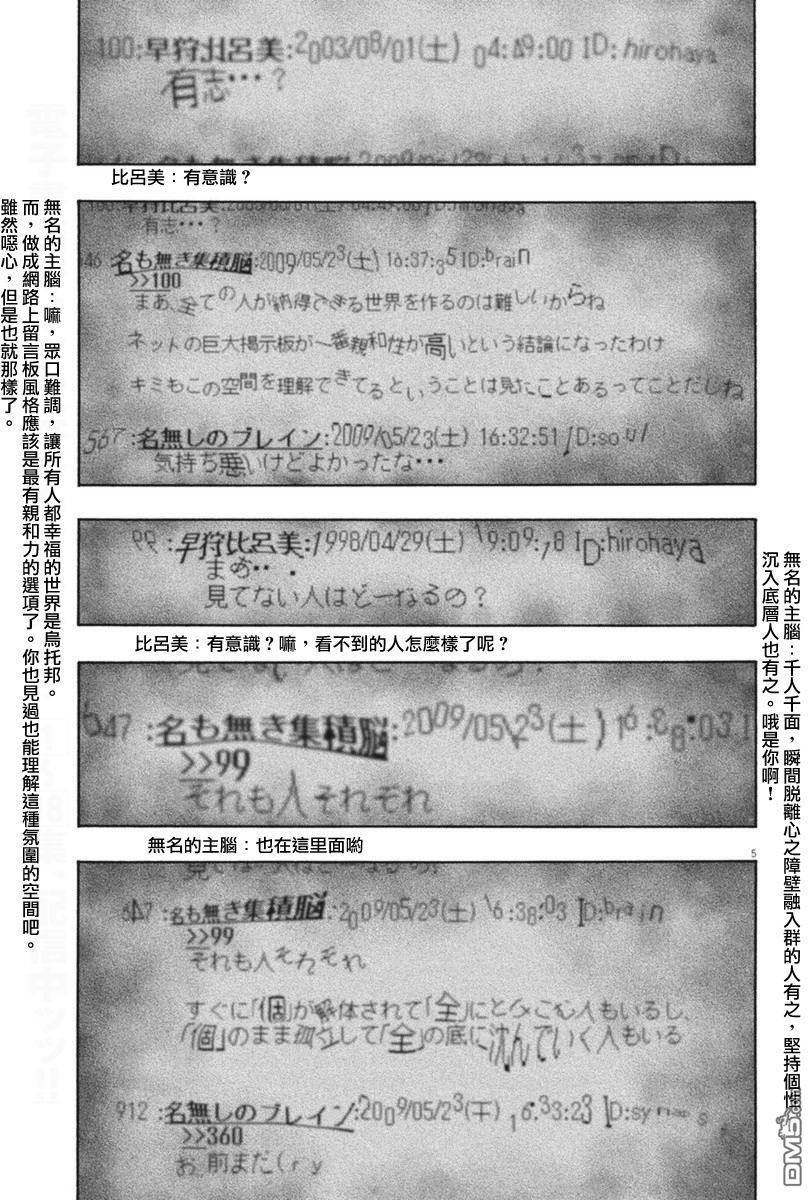 100:早狩比呂美:2003/08/01(土) 04:49:00 ID:hirohaya
有志…?
比呂美:有意識?
100:早狩比呂美:2003/08/01(土) 04:49:00 ID:hirohaya
有志…?
546 名も無き集積脳:2009/05/23(土) 16:37:35 ID:brain
>>100
まあ、全ての人が納得できる世界を作るのは難しいからね
ネットの巨大掲示板が一番親和性が高いという結論になったわけ
キミもこの空間を理解できてるということは見たことあるってことだしね
567:名無しのブレイン:2009/05/23(土) 16:32:51 ID:soul
気持ち悪いけどよかったな…
無名的主腦:嘛,眾口難調,讓所有人都幸福的世界是烏托邦。
而,做成網路上留言板風格應該是最有親和力的選項了。你也見過也能理解這種氛圍的空間吧。
雖然噁心,但是也就那樣了。
99:早狩比呂美:1998/04/29(土) 19:09:18 ID:hirohaya
まぁ…
見てない人はどーなるの?
比呂美:有意識?嘛,看不到的人怎麼樣了呢?
547:名も無き集積脳:2009/05/23(土) 16:38:03 I
>>99
それも人それぞれ
無名的主腦:千人千面,瞬間脱離心之障壁融入群的人有之,堅持個性
沉入底層人也有之。哦是你啊!
無名的主腦:也在這里面喲
5
647:名も無き集積脳:2009/05/23(土) 16:38:03 ID:brain
>>99
それも人それぞれ
すぐに「個」が解体されて「全」にとりこむ人もいるし、
「個」のまま孤立して「全」の底に沈んでいく人もいる
912:名無しのブレイン:2009/05/23(土) 16:33:23 ID:synaps
>>360
お前まだ(ry
DM5